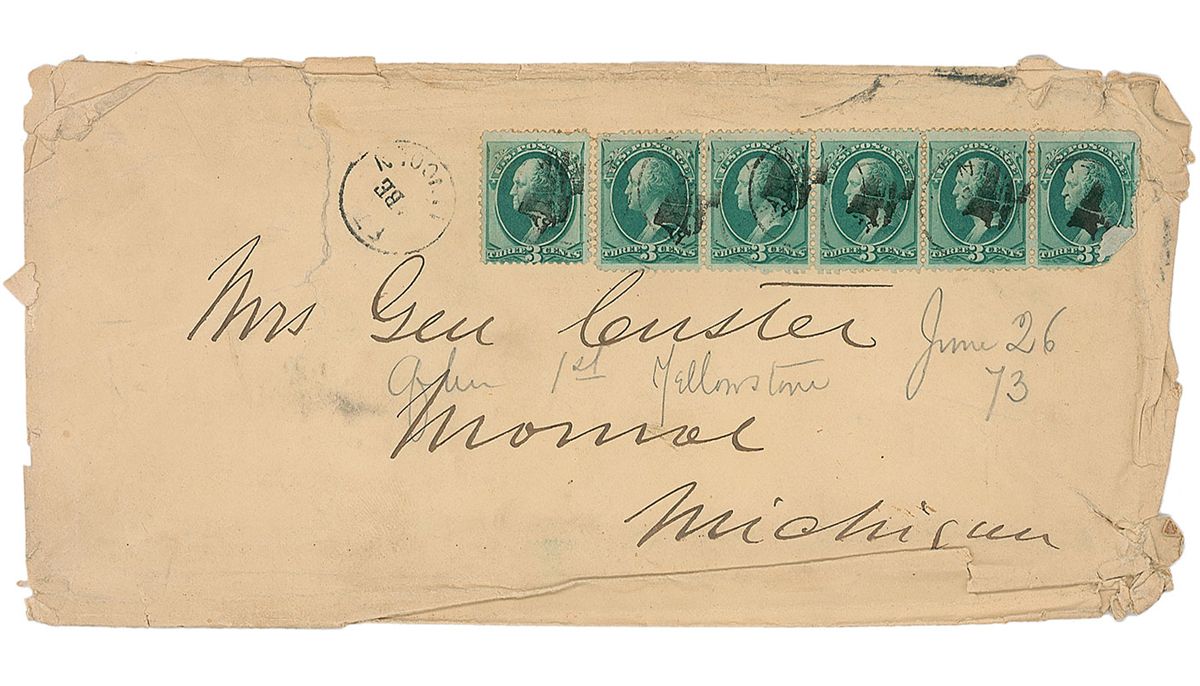 U.S. POSTAGE U.S. POSTAGE U.S. POSTAGE U.S. POSTAGE U.S. POSTAGE U.S. POSTAGE
THREE 3 CENTS THREE 3 CENTS THREE 3 CENTS THREE 3 CENTS THREE 3 CENTS THREE 3
Mrs Gen Custer June 26
1st Yellowstone 73
Monroe
Michigan